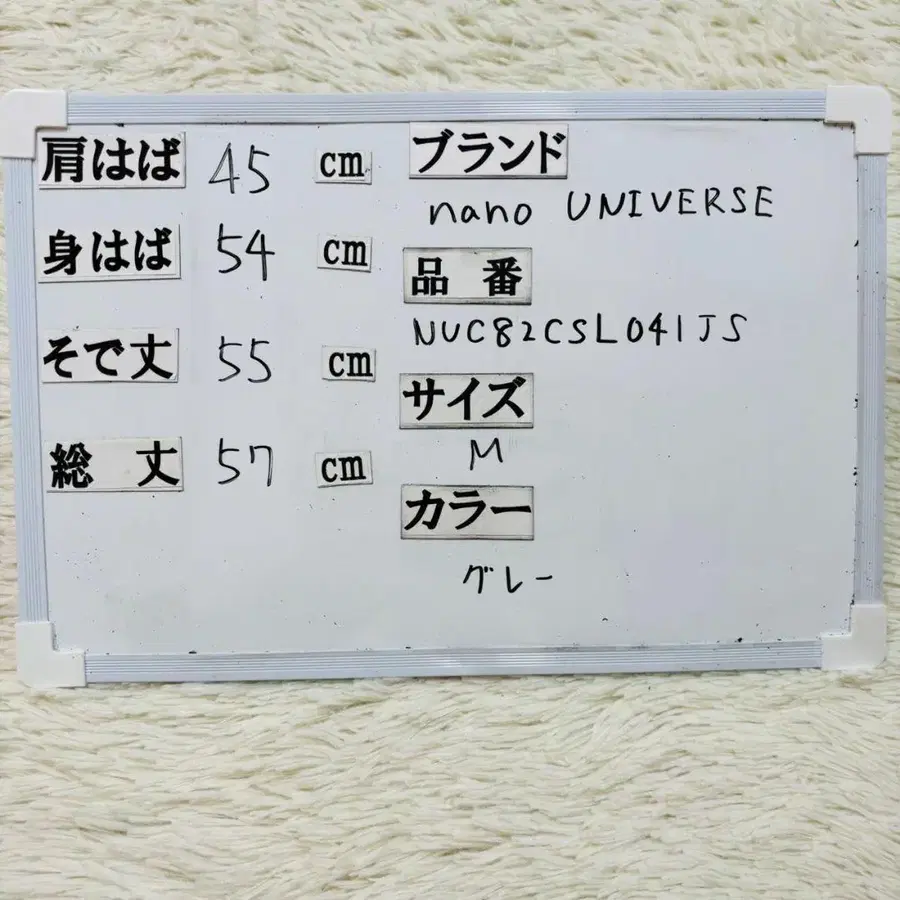 肩はば 45 cm
身はば 54 cm
そで丈 55 cm
総 丈 57 cm
ブランド
nano UNIVERSE
品 番
NUC82CSL041JS
サイズ
M
カラー
グレー